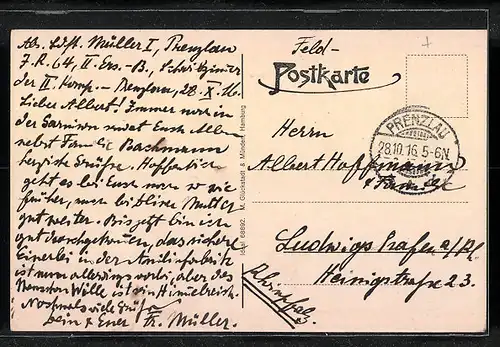 Abs. Ldst. Müller I, Prenzlau
J. R. 64, II. Ers.-B., Schreibzimmer
der II. Komp. – Prenzlau, 28. X. 16.
Lieber Albert! Immer noch in
der Garnison sendet Euch Allen
nebst Familie Bachmann
herzliche Grüße. Hoffentlich
geht es bei Euch noch so wie
früher,
gut weiter. Bis jetzt bin ich
gut durchgekommen, das sichere
Einerlei in der
ist nun allerdings vorbei, aber des
Menschen Wille ist sein Himmelreich.
Nochmals viele Grüße
Dein & Euer Fr. Müller.
M. Glückstadt & Münden, Hamburg
68892.
Feld-
Postkarte
Herrn
Albert Hoffmann
& Familie
PRENZLAU
28.10.16. 5-6N.
Ludwigshafen a/Rh.
Heinigstraße 23.
Rheinpfalz.